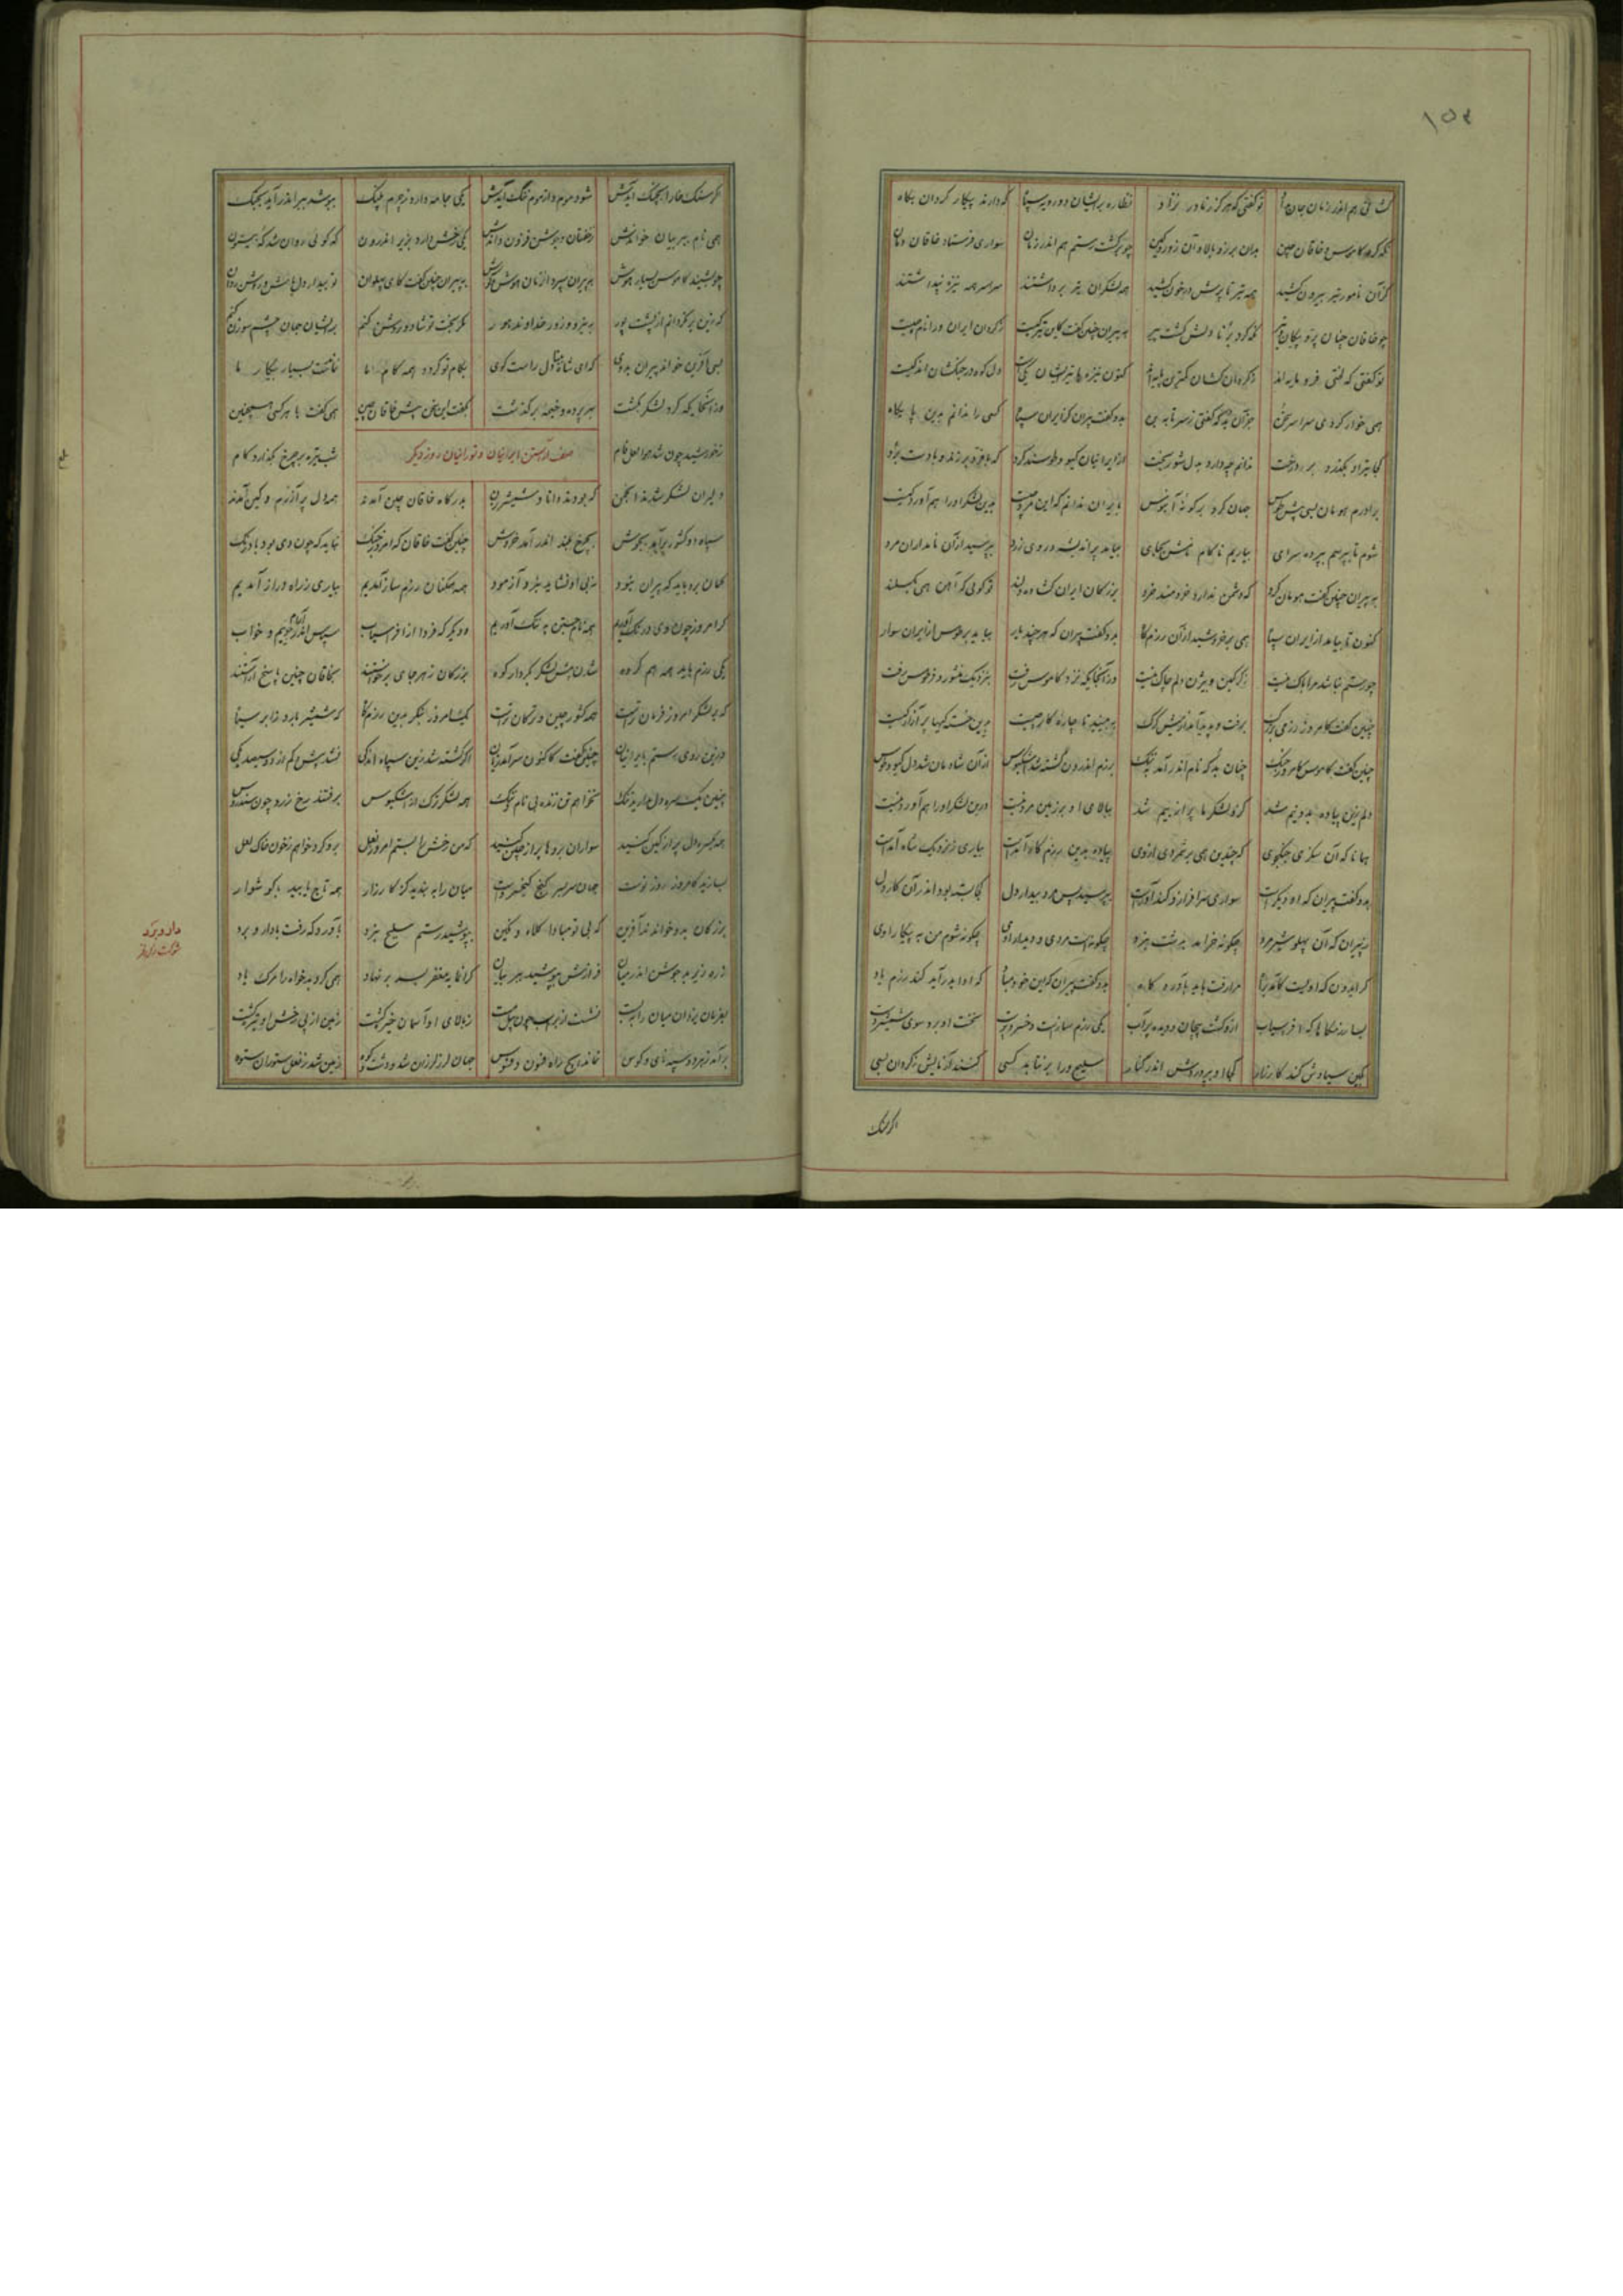 ۱۵۳
کشانی هم اندر زمان جان بداد تو گفتی که هرگز ز مادر نزاد نظاره بر ایشان دو رویه سپاه که دارند پیکار گردان نگاه
نگه کرد کاموس و خاقان چین بدان برز و بالا و آن زور و کین چو برگشت رستم هم اندر زمان سواری فرستاد خاقان دمان
کز آن نامور تیر بیرون کشید همه تیر تا پرش در خون کشید همه لشکر آن تیر برداشتند سراسر همه نیزه پنداشتند
چو خاقان چنان پر و پیکان تیر نگه کرد برنا دلش گشت پیر به پیران چنین گفت کاین مرد کیست ز گردان ایران ورا نام چیست
تو گفتی که لختی فرومایه‌اند ز گردن کشان کمترین پایه‌اند کنون نیزه با تیر ایشان یکیست دل کوه در جنگشان اندکیست
همی خوار کردی سراسر سخن جز آن بد که گفتی ز سر تا به بن بدو گفت پیران کز ایران سپاه کسی را ندانم بدین پایگاه
کجا تیر او بگذرد بر درخت ندانم چه دارد به دل شوربخت از ایرانیان گیو و طوسند گرد که با فر و برزند و با دستبرد
برادرم هومان بسی پیش طوس جهان کرد بر گونه آبنوس به ایران ندانم که این مرد کیست بدین لشکر او را هم آورد کیست
شوم تا بپرسم ز پرده سرای بیاریم ناکام نامش بجای بیامد پر اندیشه و روی زرد بپرسید از آن نامداران مرد
به پیران چنین گفت هومان گرد که دشمن ندارد خردمند خرد بزرگان ایران گشاده دلند تو گوئی که آهن همی بگسلند
کنون تا بیامد از ایران سپاه همی بر خروشید از آن رزمگاه بدو گفت پیران که هر چند یار بیاید بر طوس از ایران سوار
چو رستم نباشد مرا باک نیست ز گرگین و بیژن دلم چاک نیست وز آنجایگه نزد کاموس رفت به نزدیک منشور و فرطوس رفت
چنین گفت کامروز رزمی بزرگ برفت و پدید آمد از میش گرگ ببینید تا چاره کار چیست بدین خسته گیها بر آزار کیست
چنین گفت کاموس کامروز جنگ چنان بد که نام اندر آمد به ننگ برزم اندرون کشته شد اشکبوس از آن شادمان شد دل گیو و طوس
دلم زین پیاده به دو نیم شد کزو لشکر ما پر از بیم شد ببالای او بر زمین مرد نیست درین لشکر او را هم آورد نیست
همانا که آن سگزی جنگجوی که چندین همی بر شمردی ازوی پیاده بدین رزمگاه آمدست بیاری ز نزدیک شاه آمدست
بدو گفت پیران که او دیگرست سواری سرافراز و کندآورست بپرسید پس مرد بیدار دل کجا بسته بود اندر آن کار دل
ز پیران که آن پهلو شیرمرد چگونه خرامد به دشت نبرد چگونه است مردی و دیدار اوی چگونه شوم من به پیکار اوی
گر ایدون که او است کآمد ز راه مرا رفت باید به آوردگاه بدو گفت پیران که این خود مباد که او اید رآید کند رزم یاد
بسا رزمگاها که افراسیاب ازو گشت پیچان و دیده پر آب یکی رزم سازست و خسروپرست نخست او برد سوی شمشیر دست
بکین سیاوش کند کارزار کجا او بپروردش اندر کنار سلیح ورا بر نتابد کسی کنند آزمایش ز گردان بسی
اگر سنگ
گر سنگ خارا بچنگ آیدش شود موم و از موم ننگ آیدش یکی جامه دارد ز چرم پلنگ بپوشد ببر اندر آید بجنگ
همی نام ببر بیان خواندش ز خفتان و جوشن فزون داندش یکی رخش دارد بزیر اندرون که گوئی روان شد که بیستون
چو بشنید کاموس بسیار هوش به پیران سپرد آن زمان هوش و گوش به پیران چنین گفت کای پهلوان تو بیدار دل باش و روشن روان
که زین بر نگردانم از پشت بور به نیرو و زور خداوند هور مگر بخت تو شاد و روشن کنم بر ایشان جهان چشم سوزن کنم
بسی آفرین خواند پیران بدوی که ای شاه بینا دل راست گوی بکام تو گردد همه کام ما نمانست بسیار پیکار ما
وز آنجایگه گرد لشکر بگشت بهر پرده و خیمه بر گذشت بگفت این سخن پیش خاقان چین همی گفت با هر کسی همچنین
ز خورشید چون شد هوا لعل فام صف آراستن ایرانیان و تورانیان روز دیگر شب تیره بر چرخ بگذارد گام
دلیران لشکر شدند انجمن که بودند دانا و شمشیرزن بدرگاه خاقان چین آمدند همه دل پر آزرم و کین آمدند
سپاه دو کشور برآمد بجوش بچرخ بلند اندر آمد خروش چنین گفت خاقان که امروز جنگ نباید که چون دی بود با درنگ
گمان برد باید که پیران نبود نه بی او نشاید نبرد آزمود همه همگنان رزم ساز آمدیم بیاری ز راه دراز آمدیم
گر امروز چون دی درنگ آوریم همه نام جستن به ننگ آوریم و دیگر که فردا از افراسیاب سپاس اندر آرام جوییم و خواب
یکی رزم باید همه هم گروه شدن پیش لشکر بکردار کوه بزرگان ز هر جای برخاستند بخاقان چنین پاسخ آراستند
که بر لشکر امروز فرمان تراست همه کشور چین و ترکان تراست یک امروز بنگر بدین رزمگاه که شمشیر بارد ز ابر سیاه
وزین روی رستم بایرانیان چنین گفت کاکنون سر آمد زمان اگر کشته شد زین سپاه اندکی نشد بیش و کم از دو سیصد یکی
چنین یک سره دل مدارید تنگ نخواهم تن زنده بی نام و ننگ همه لشکر ترک از اشکبوس برفتند رخ زرد چون سندروس
همه یکسره دل پر از کین کنید سواران بروها پر از چین کنید که من رخش را بستم امروز نعل برو کرد خواهم ز خون خاک لعل
بسازید کامروز روز نوست جهان سر بسر گنج کیخسروست میان را به بندید کز کارزار همه تاج یابید با گوشوار
بزرگان بدو خواندند آفرین که بی تو مبادا کلاه و نگین بپوشید رستم سلیح نبرد بآورد گه رفت با دار و برد
زره زیر بد جوشن اندر میان فرازش بپوشید ببر بیان گرانمایه مغفر بسر بر نهاد همی کرد بدخواه را مرگ یاد
بفرمان یزدان میان را ببست نشست از بر اسپ چون پیل مست ز بالای او آسمان خیره گشت زمین از پی رخش او تیره گشت
برآمد ز هر دو سپه نای و کوس نماند ایچ راه فسون و فسوس جهان لرز لرزان شد و دشت و کوه زمین شد ز نعل ستوران ستوه
دار و برد